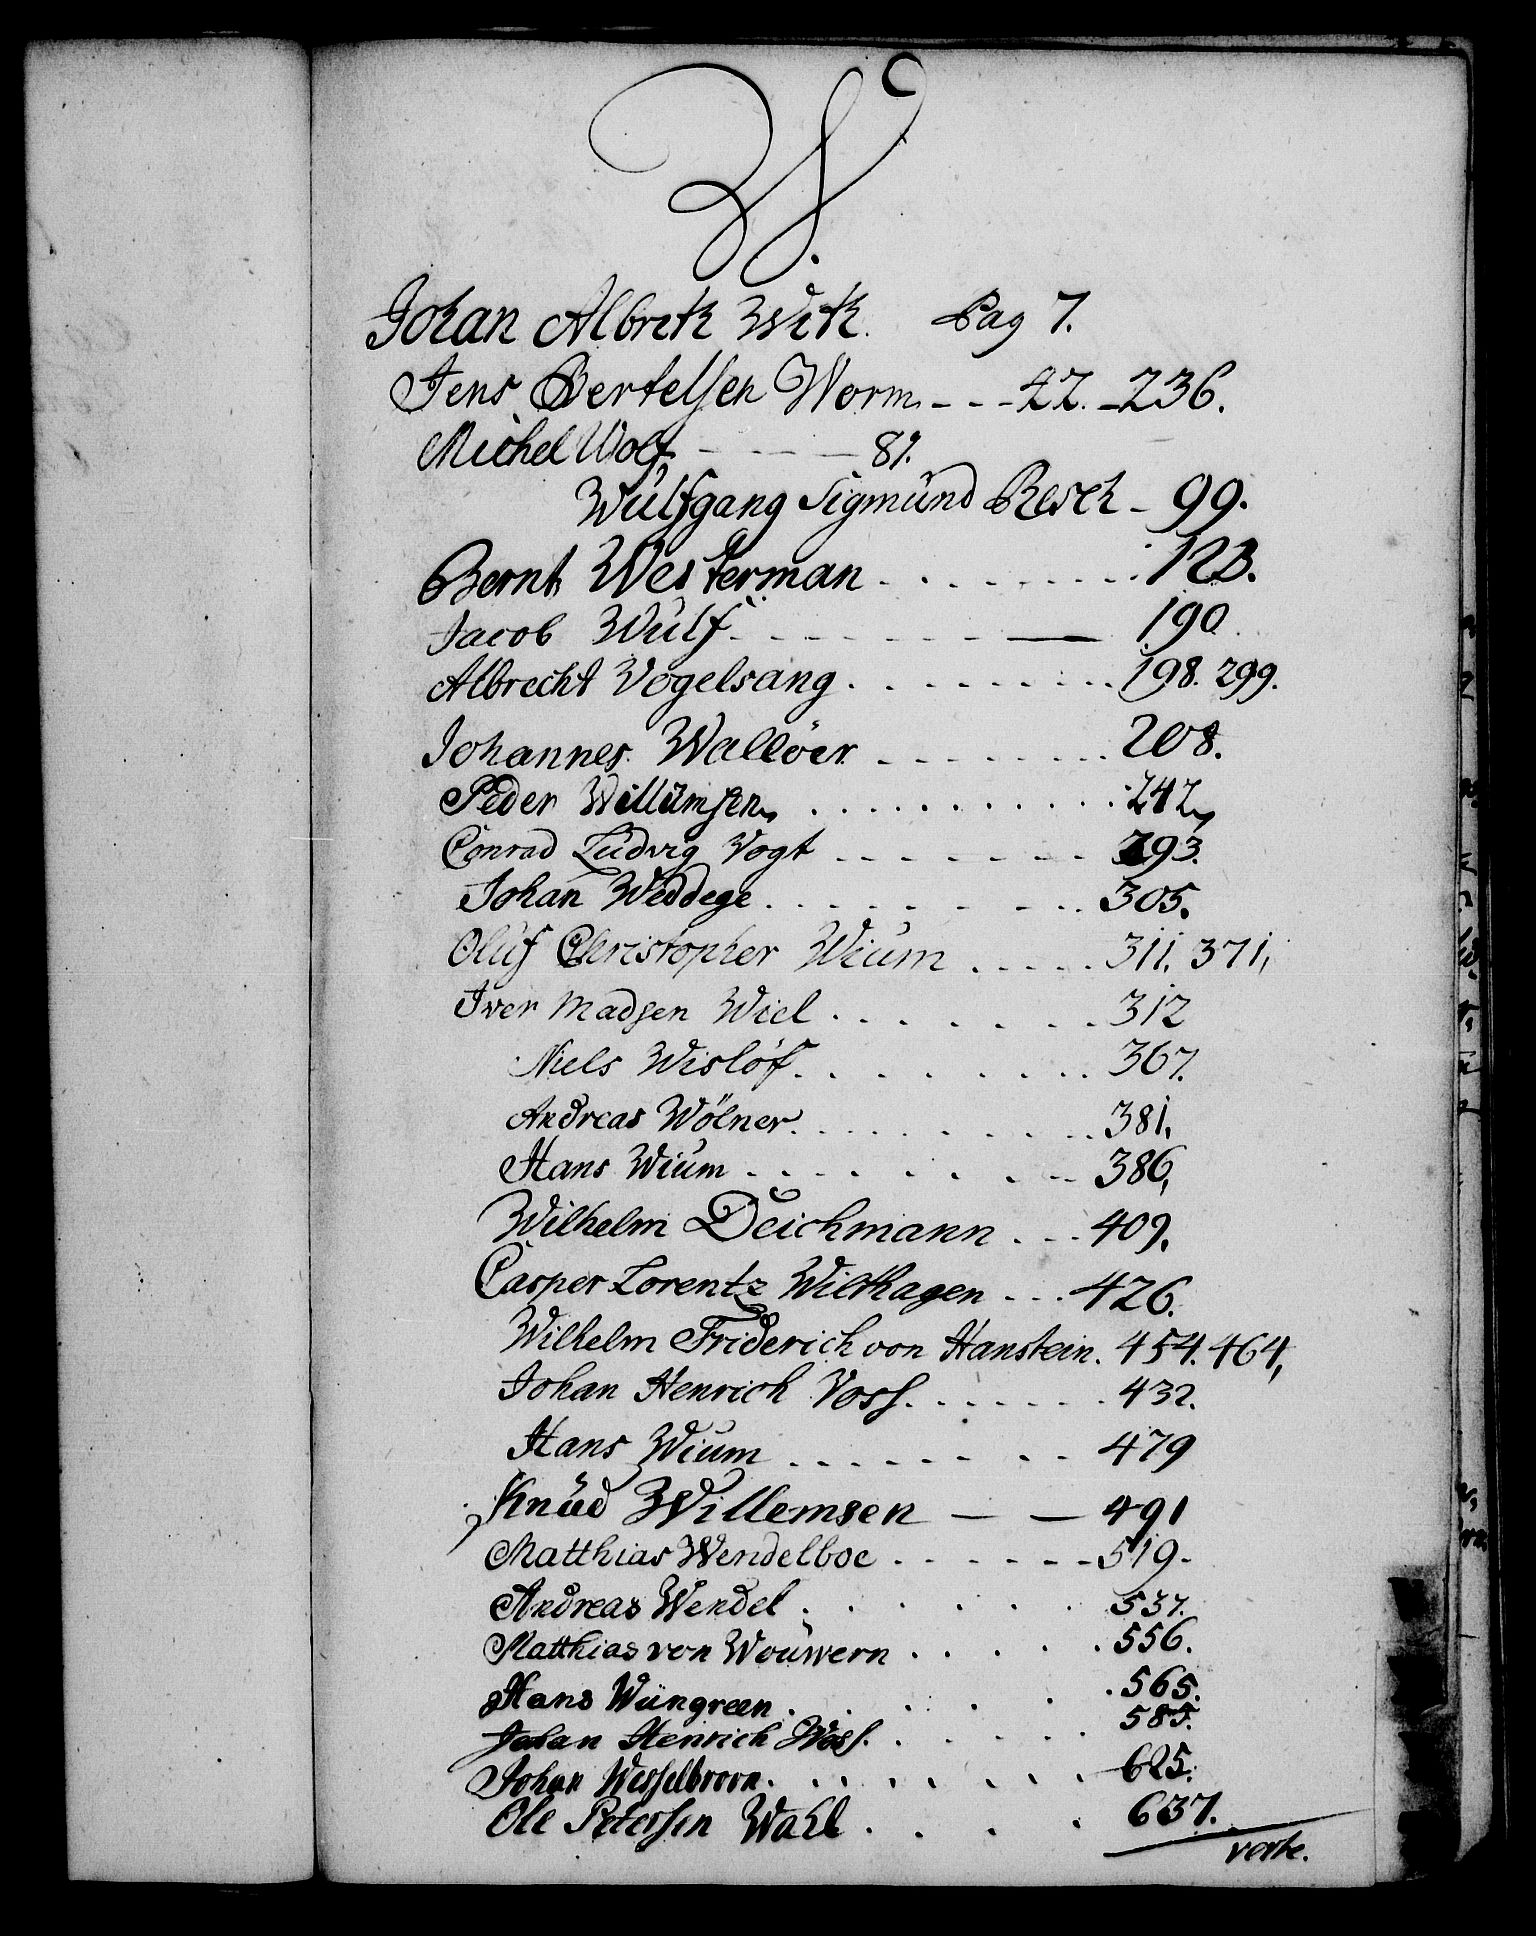 W.
Johan Albreth With. Pag 7.
Jens Bertelsen Worm - - - 42. - 236.
Michel Wolf - - - - 87.
Wulfgang Sigmund Resch - 99.
Bernt Westerman . . . . . . . . 123.
Jacob Wulf - - - - - - 190
Albrecht Vogelsang . . . . . . . . . 198. 299.
Johannes Wallöer - - - - - - 208.
Peder Willumsen . . . . . . . . . . 242,
Conrad Ludvig Vogt - - - - - - - 293.
Johan Weddege . . . . . . . . 305.
Oluf Christopher Wium . . . . . 311, 371,
Iver Madsen Wiel . . . . . . . 312
Niels Wislöf . . . . . . . . . 367.
Andreas Wölner . . . . . . . . . 381,
Hans Wium . . . . . . . . 386,
Wilhelm Deichmann . . . 409.
Casper Lorentz Withagen . . . 426.
Wilhelm Friderich von Hanstein. 454. 464,
Johan Henrich Voss . . . . . . . 432.
Hans Wium . . . . . . . . 479
Knud Willemsen — — 491
Matthias Wendelboe . . . . . . . 519.
Andreas Wendel . . . . . . . 537.
Matthias von Wouwern . . . . . 556.
Hans Wungreen . . . . . . 565.
Johan Henrich Woss. . . . . . 585.
Johan Wesselbrorn . . . . . . . . 625.
Ole Petersen Wahl . . . . 637.
verte.